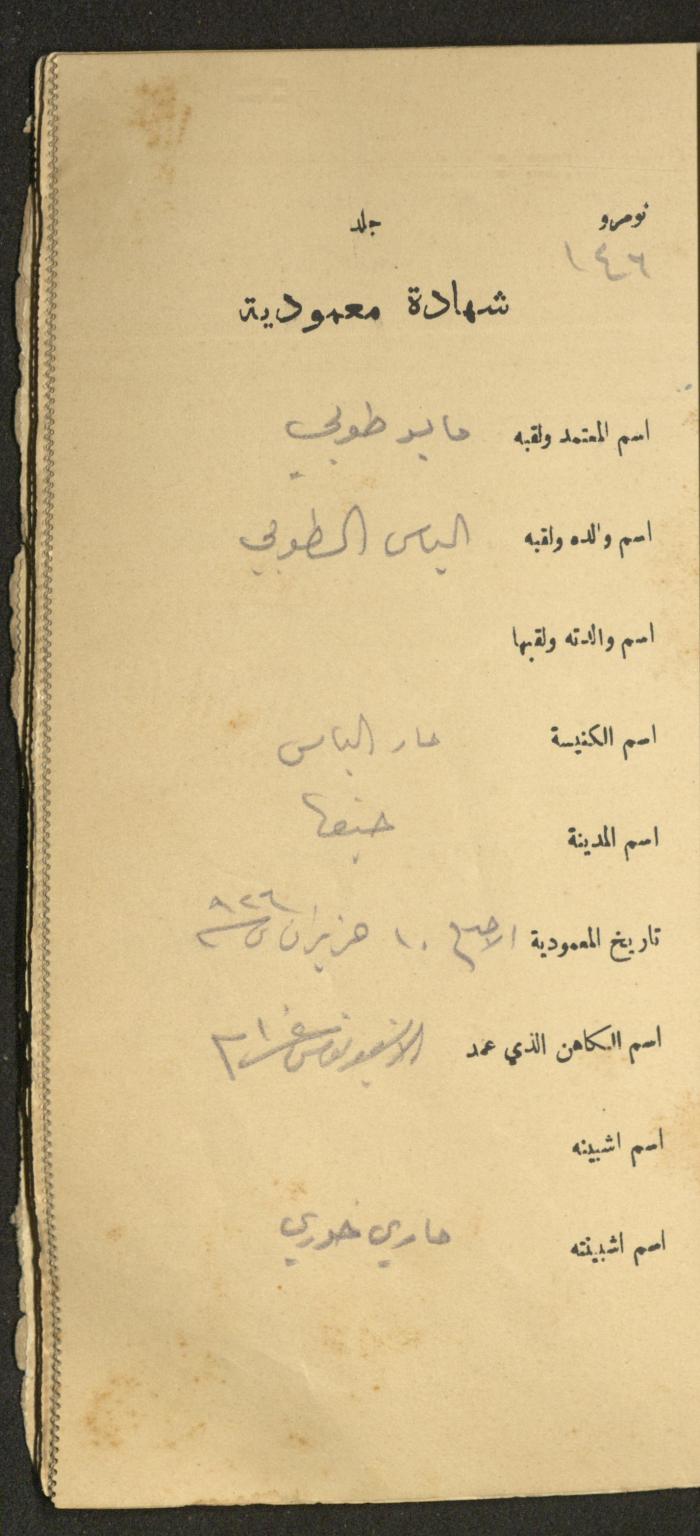 نومرو جلد
١٤٦
شهادة معمودية
اسم المعتمد ولقبه طوبي
اسم والده ولقبه الياس الطوبي
اسم والدته ولقبها
اسم الكنيسة مار الياس
اسم المدينة حيفا
تاريخ المعمودية ١٠ حزيران سنة ٩٢٦
اسم الكاهن الذي عمد
اسم اشبينه
اسم اشبينته ماري خوري